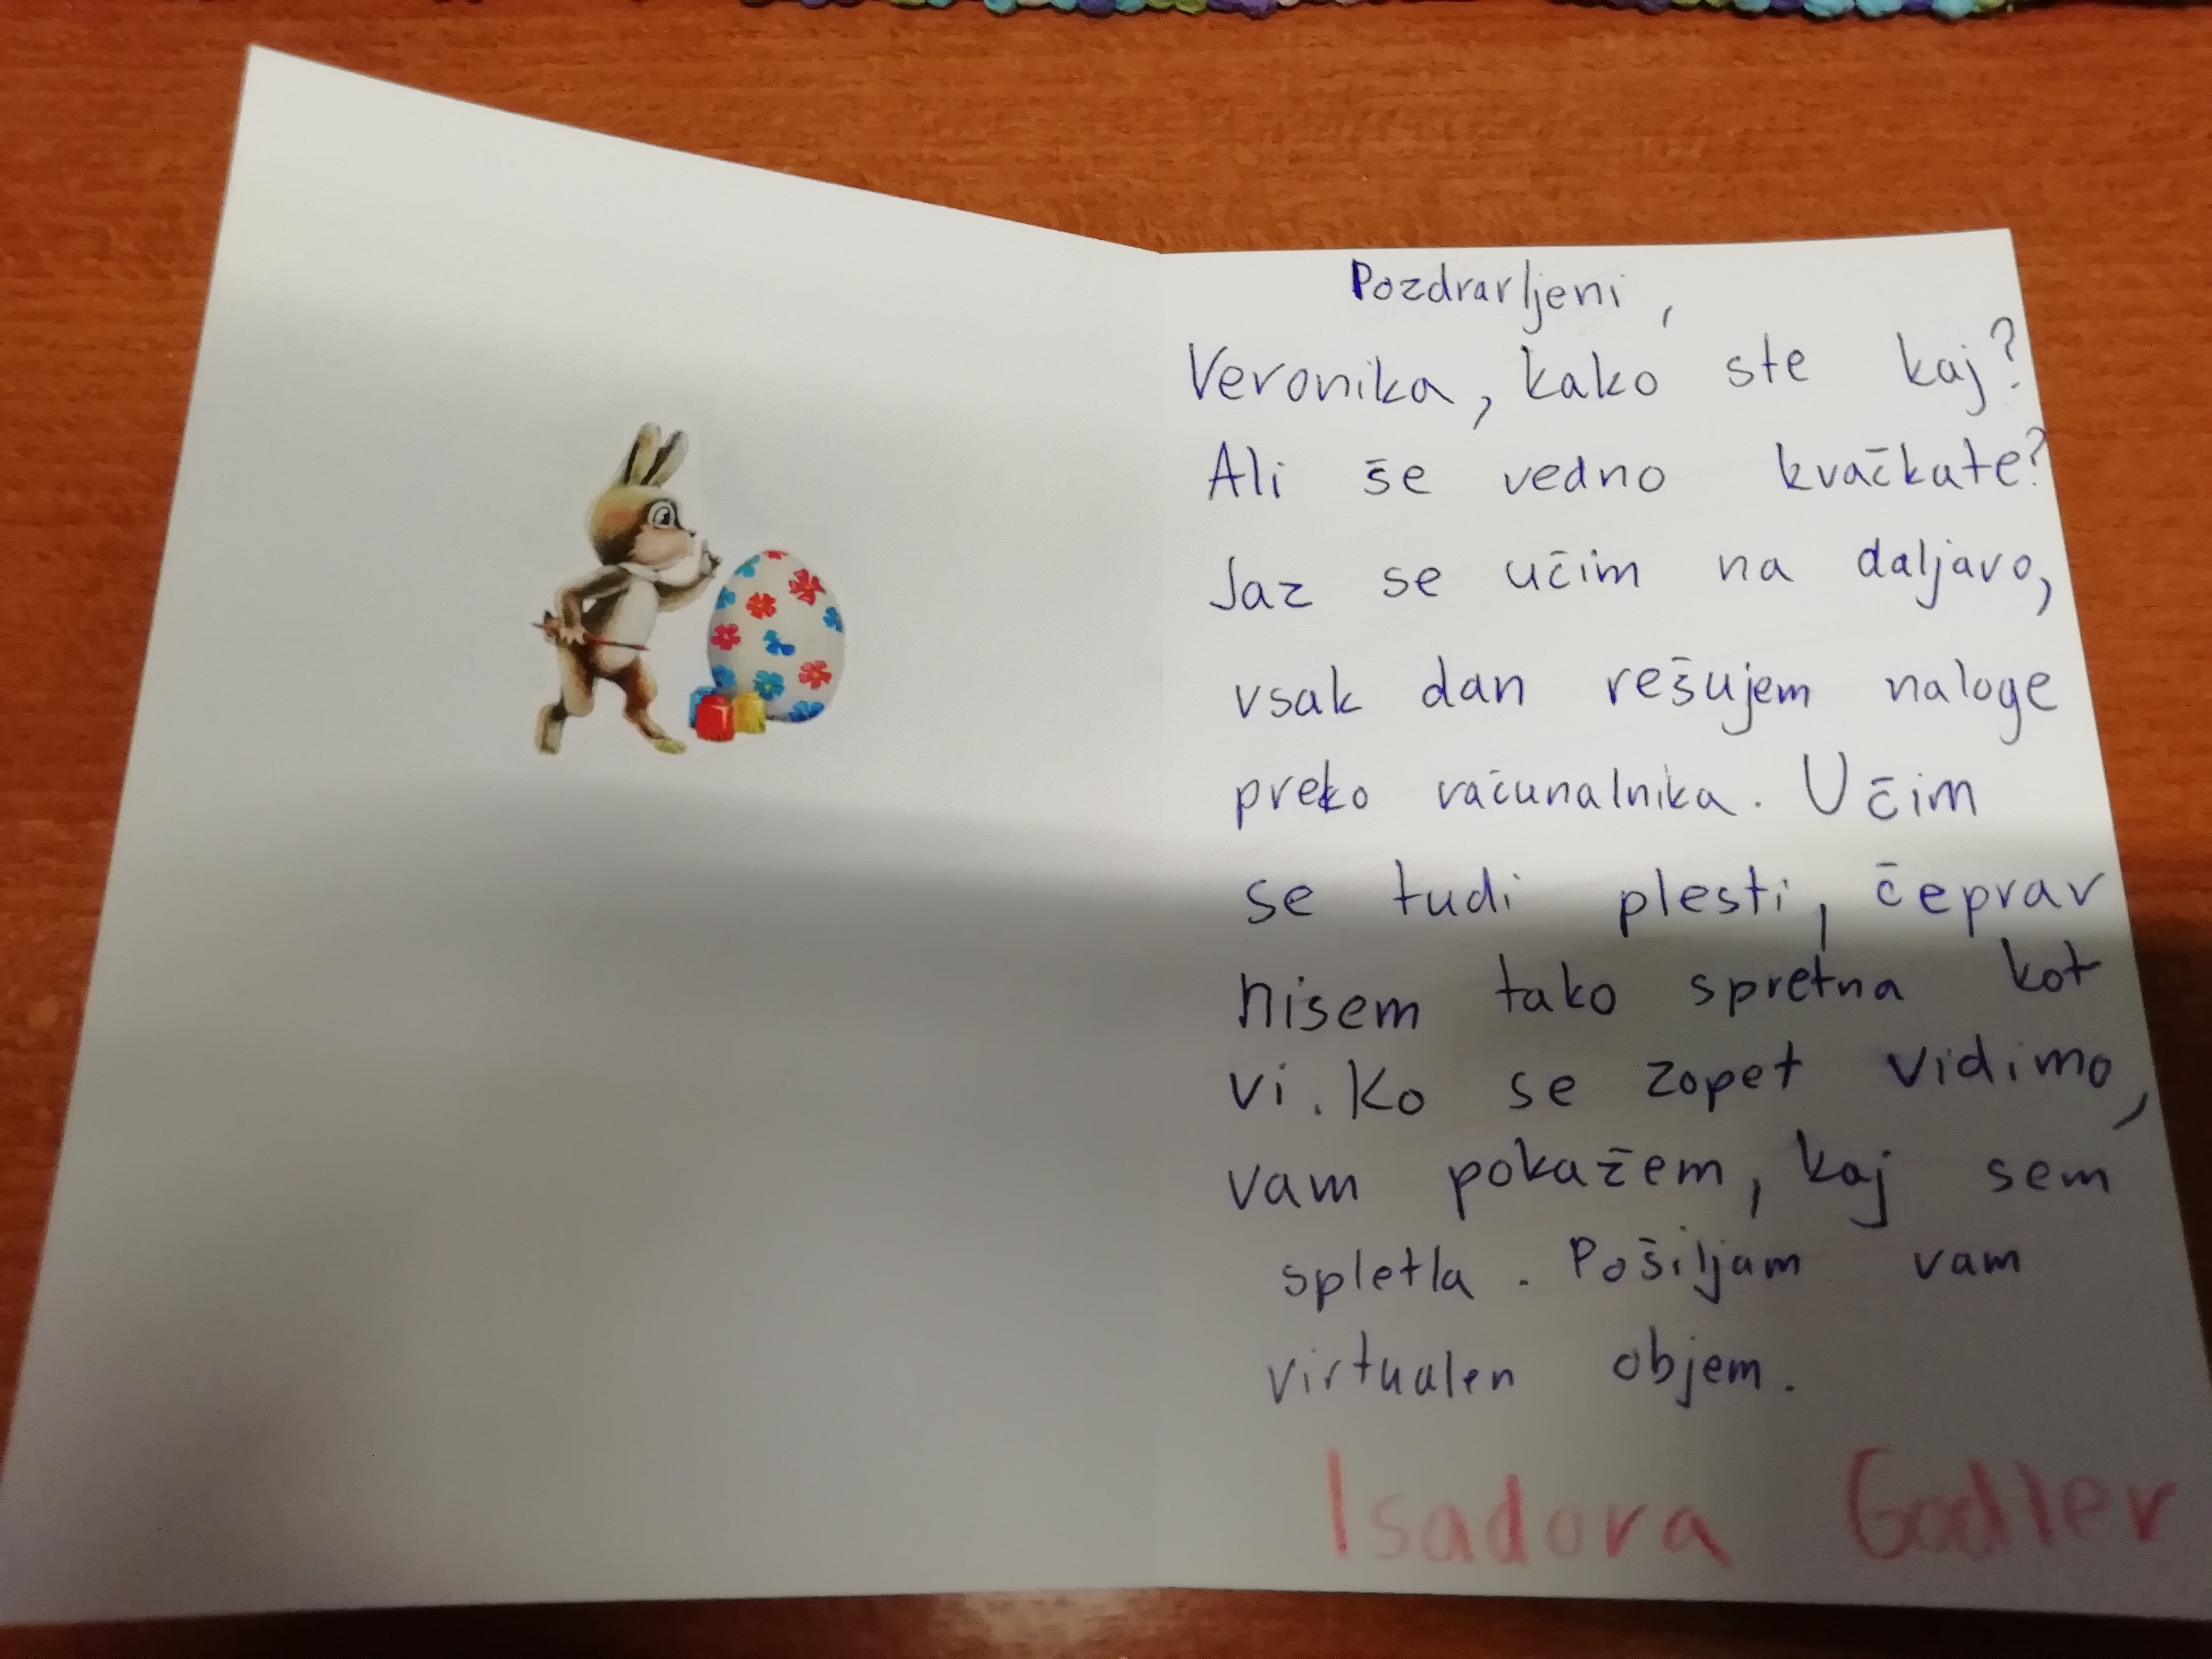 Pozdravljeni,
Veronika, kako ste kaj?
Ali še vedno kvačkate?
Jaz se učim na daljavo,
vsak dan rešujem naloge
preko računalnika. Učim
se tudi plesti, čeprav
nisem tako spretna kot
vi. Ko se zopet vidimo,
vam pokažem, kaj sem
spletla. Pošiljam vam
virtualen objem.
Isadora Godler